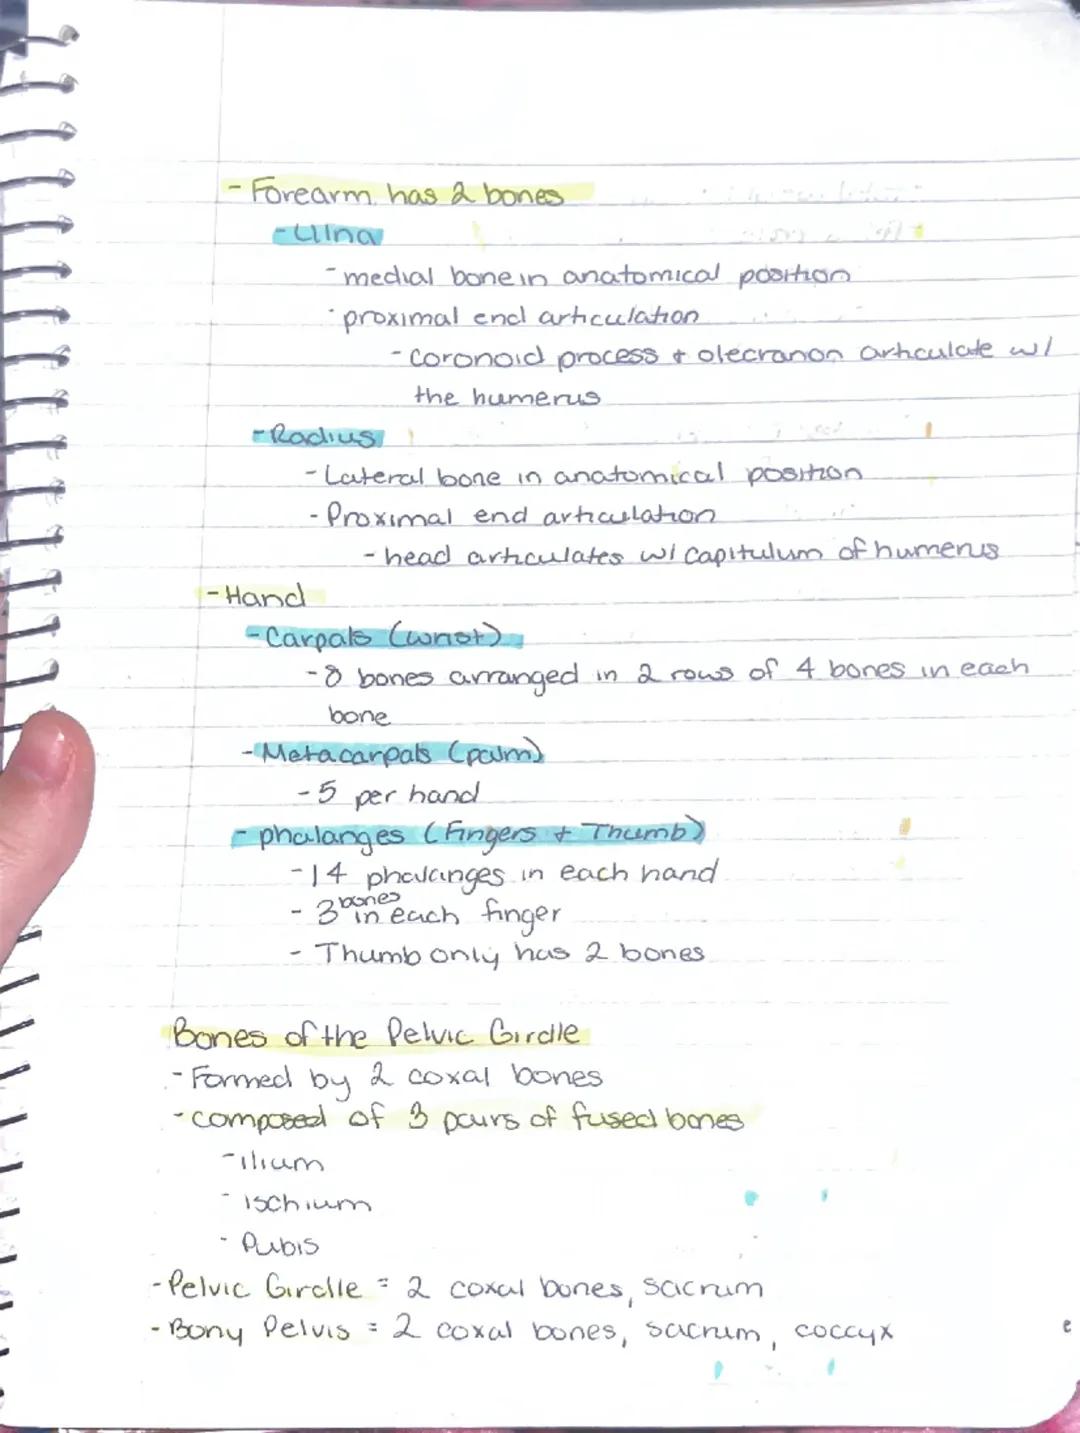 - Forearm has 2 bones
- Ulna
- medial bone in anatomical position
- proximal end articulation
- coronoid process + olecranon articulate w/
the humerus
- Radius
- Lateral bone in anatomical position
- Proximal end articulation
- head articulates w/ capitulum of humerus
- Hand
- Carpals (wrist)
- 8 bones arranged in 2 rows of 4 bones in each
bone
- Metacarpals (palm)
- 5 per hand
- phalanges (Fingers + Thumb)
- 14 phalanges in each hand
- 3 bones in each finger
- Thumb only has 2 bones
Bones of the Pelvic Girdle
- Formed by 2 coxal bones
- composed of 3 pairs of fused bones
- ilium
- ischium
- Pubis
- Pelvic Girdle = 2 coxal bones, sacrum
- Bony Pelvis = 2 coxal bones, sacrum, coccyx
e